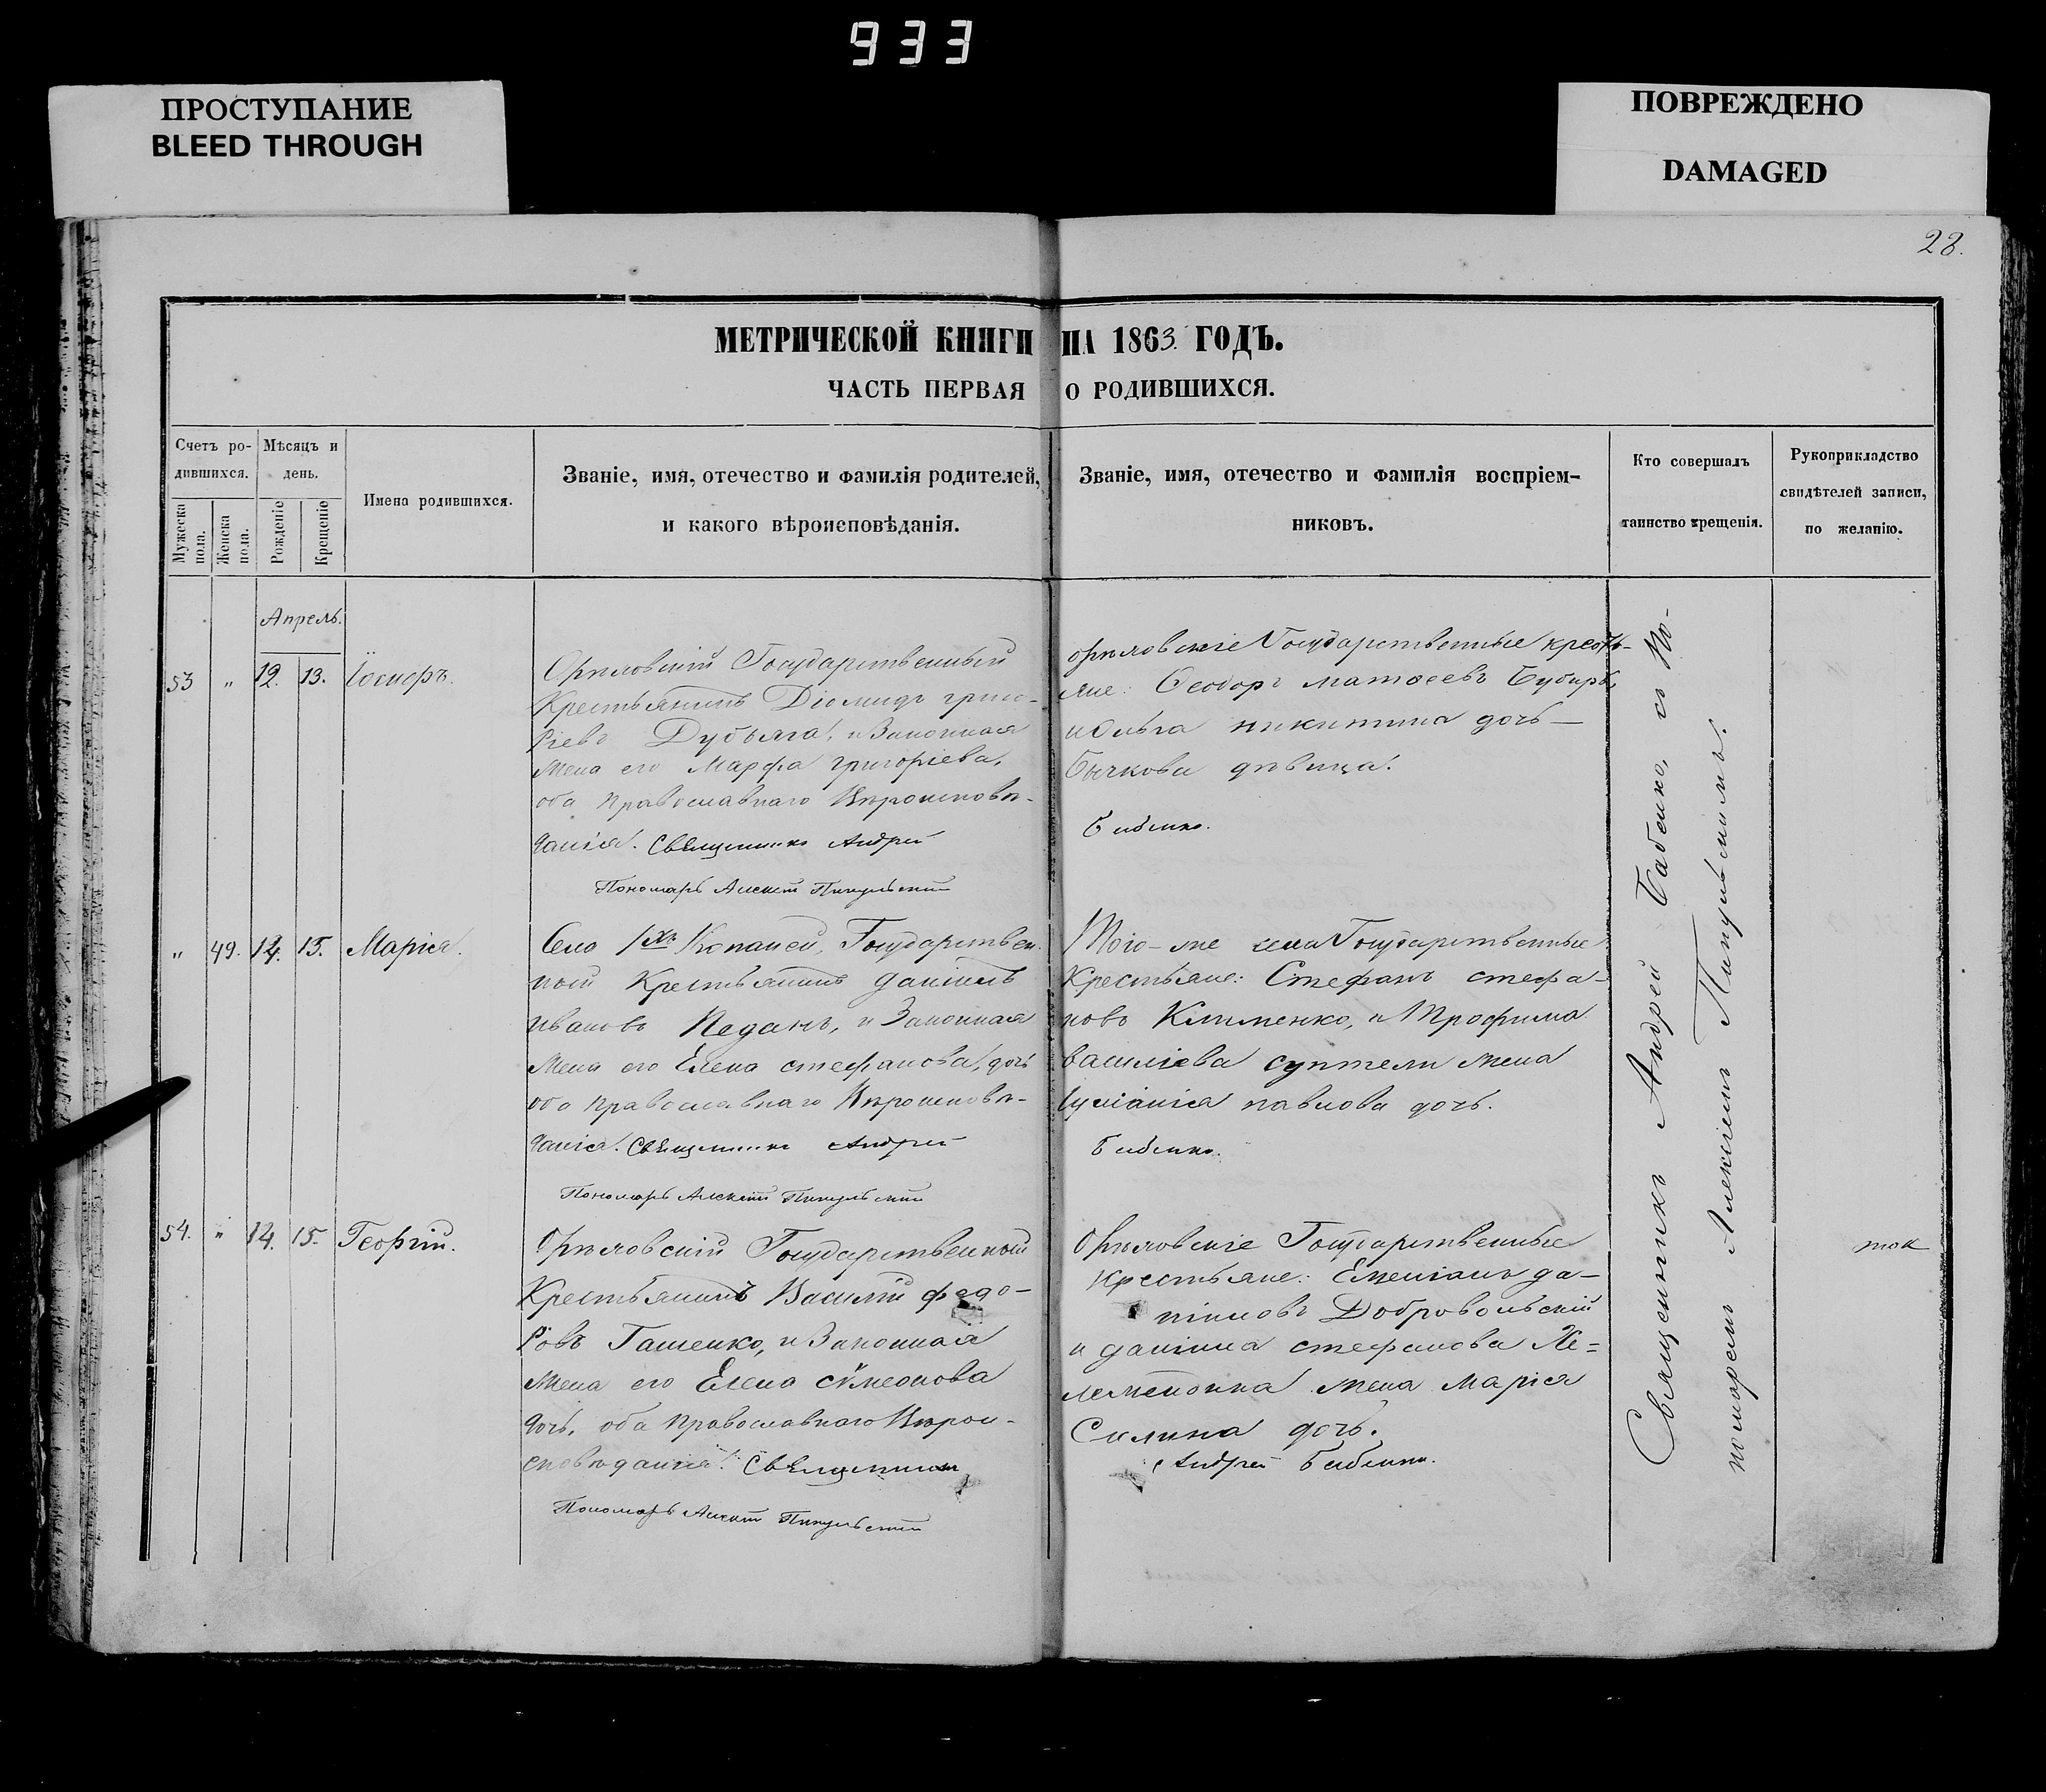 933
ПРОСТУПАНИЕ
BLEED THROUGH
ПОВРЕЖДЕНО
DAMAGED
28.
МЕТРИЧЕСКОЙ КНИГИ НА 1863. ГОДЪ.
ЧАСТЬ ПЕРВАЯ О РОДИВШИХСЯ.
Счетъ ро-
дившихся.
Мужеска
пола.
Женска
пола.
Мѣсяцъ и
день.
Рожденіе
Крещеніе
Имена родившихся.
Званіе, имя, отечество и фамилія родителей,
и какого вѣроисповѣданія.
Званіе, имя, отечество и фамилія воспріем-
никовъ.
Кто совершалъ
таинство крещенія.
Рукоприкладство
свидѣтелей записи,
по желанію.
Апрель.
53 " 12. 13. Іосифъ.
Орѣловскій Государственный
Крестьянинъ Діомидъ григо-
ріевъ Дубяга, и Законная
Жена его Марфа григоріева,
оба православнаго Вѣроисповѣ-
данія. Священникъ Андрей
Пономарь Алексій Пикульскій
орѣловскіе Государственные кресть-
яне: Ѳеодоръ матѳеевъ
и Ольга никитина дочь
Бычкова дѣвица.
Бабенко.
" 49. 14. 15. Марія.
Села 1хъ Копаней, Государствен
ной Крестьянинъ даніилъ
ивановъ Педанъ, и Законная
Жена его Елена стефанова, дочь
оба православнаго Вѣроисповѣ-
данія. Священникъ Андрей
Пономарь Алексій Пикульскій
Того-же села Государственные
Крестьяне: Стефанъ стефа-
новъ Клименко, и Трофима
василіева жена
Іуліанія павлова дочь.
Бабенко.
54. " 14. 15. Георгій.
Орѣловскій Государственный
Крестьянинъ Василій федо-
ровъ Гашенко, и Законная
Жена его Елена сѵмеонова
дочь, оба православнаго Вѣрои-
сповѣданія. Священникъ
Пономарь Алексій Пикульскій
Орѣловскіе Государственные
Крестьяне: Емеліанъ да-
ніиловъ Добровольскій
и даніила стефанова Же=
жена Марія
Силина дочь.
Андрей Бабенко.
Священникъ Андрей Бабенко, съ По-
номаремъ Алексіемъ Пикульскимъ.